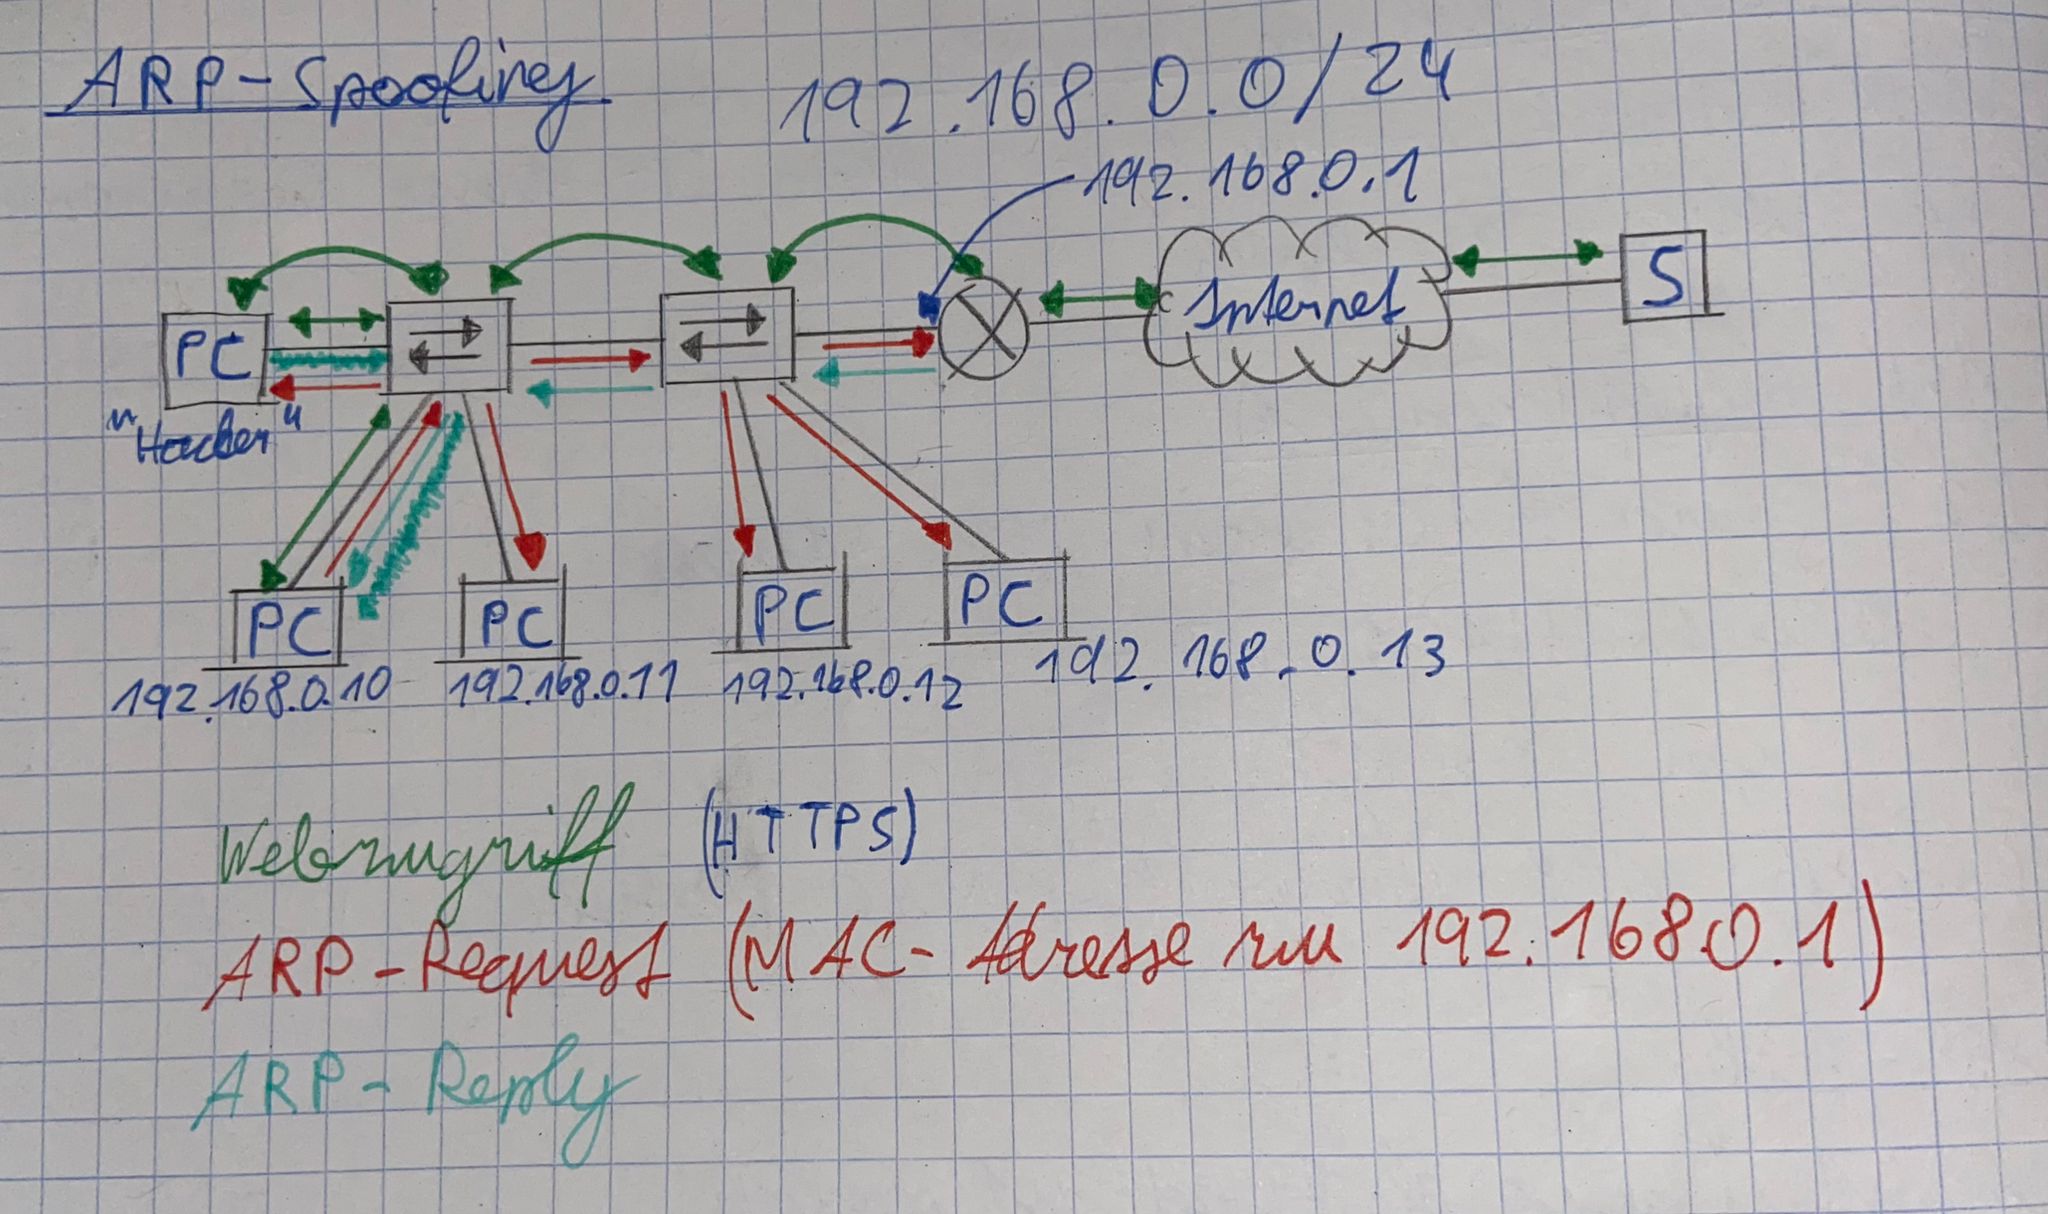 ARP-Spoofing 192.168.0.0/24
192.168.0.1
PC
Internet
S
"Hacker"
PC
PC
PC
PC
192.168.0.10
192.168.0.11
192.168.0.12
192.168.0.13
Webzugriff (HTTPS)
ARP-Request (MAC-Adresse zu 192.168.0.1)
ARP-Reply